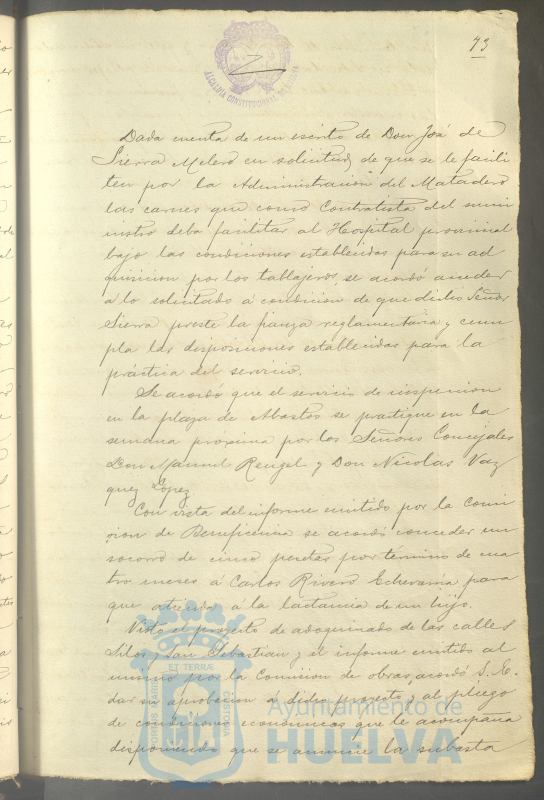 73
ALCALDIA CONSTITUCIONAL DE HUELVA
Dada cuenta de un escrito de Don José de
Sierra Melero en solicitud de que se le facili
ten por la Administración del Matadero
las carnes que como Contratista del sumi
nistro deba facilitar al Hospital provincial
bajo las condiciones establecidas para su ad
quisicion por los tablajeros, se acordó acceder
á lo solicitado á condicion de que dicho Señor
Sierra preste la fianza reglamentaria y cum
pla las disposiciones establecidas para la
práctica del servicio.
Se acordó que el servicio de inspeccion
en la plaza de Abastos se practique en la
semana proxima por los Señores Concejales
Don Manuel Rengel y Don Nicolas Vaz
quez López
Con vista del informe emitido por la Comi
sion de Beneficencia se acordó conceder un
socorro de cinco pesetas por término de cua
tro meses á Carlos Rivero Echevarria para
que atienda a la lactancia de un hijo.
Visto el proyecto de adoquinado de las calles
Silos y San Sebastian y el informe emitido al
mismo por la Comision de obras, acordó S. E.
dar su aprobacion á dicho proyecto y al pliego
de condiciones económicas que le acompaña
disponiendo que se anuncie la subasta
PORTUS MARIS ET TERRÆ CUSTODIA
Ayuntamiento de
HUELVA